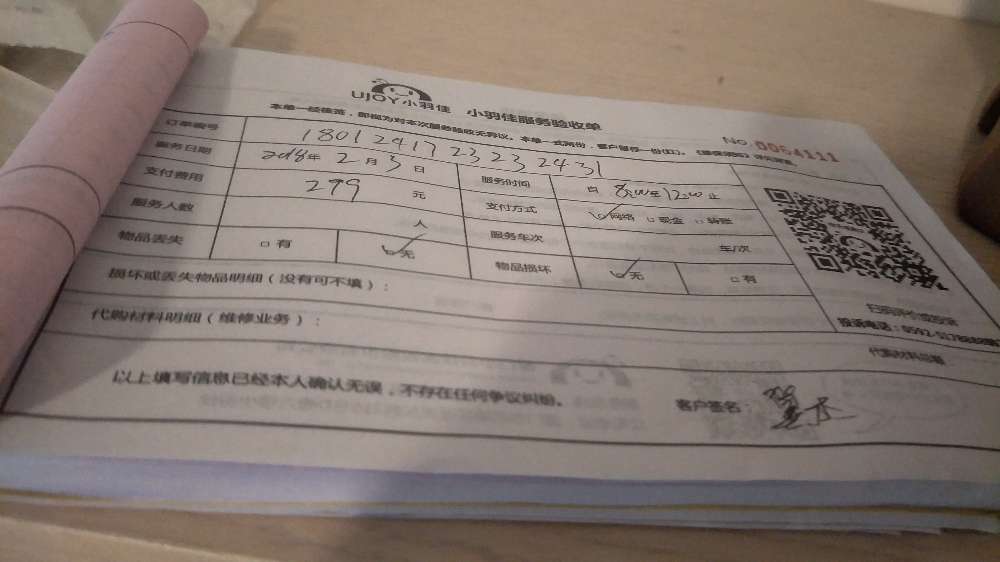 UJOY小羽佳 小羽佳服务验收单
本单一经签完，即视为对本次服务验收无异议。本单一式两份，客户留存一份(红)。
No 0064111
订单编号 18012417232324 31
服务日期 2018年 2 月 3 日 服务时间 自 8:00至12:00止
支付费用 299 元 支付方式 ☑网络 □现金 □转账
服务人数 人 服务车次 车/次
物品丢失 □有 ☑无 物品损坏 ☑无 □有
损坏或丢失物品明细（没有可不填）：
扫码评价或投诉
投诉电话：0592-
代购材料明细（维修业务）：
以上填写信息已经本人确认无误，不存在任何争议纠纷。 客户签名：